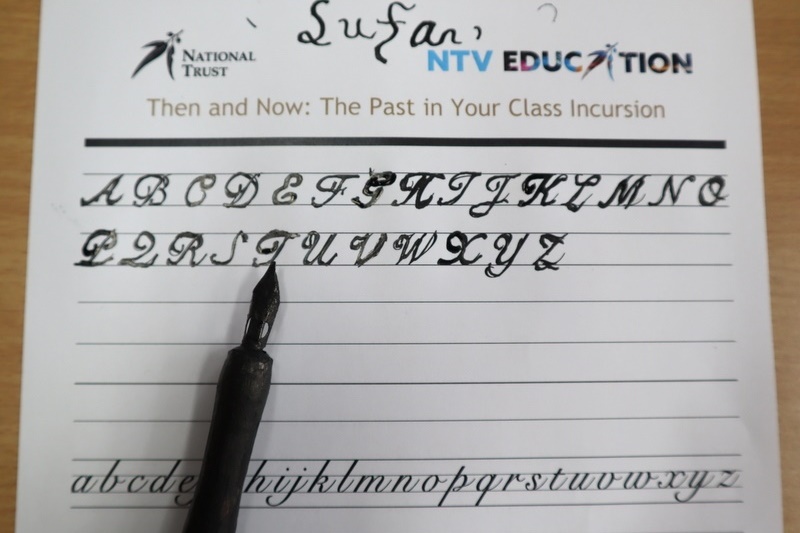 Sufan
NATIONAL TRUST
NTV EDUCATION
Then and Now: The Past in Your Class Incursion
A B C D E F G H I J K L M N O
P Q R S T U V W X Y Z
a b c d e h i j k l m n o p q r s t u v w x y z